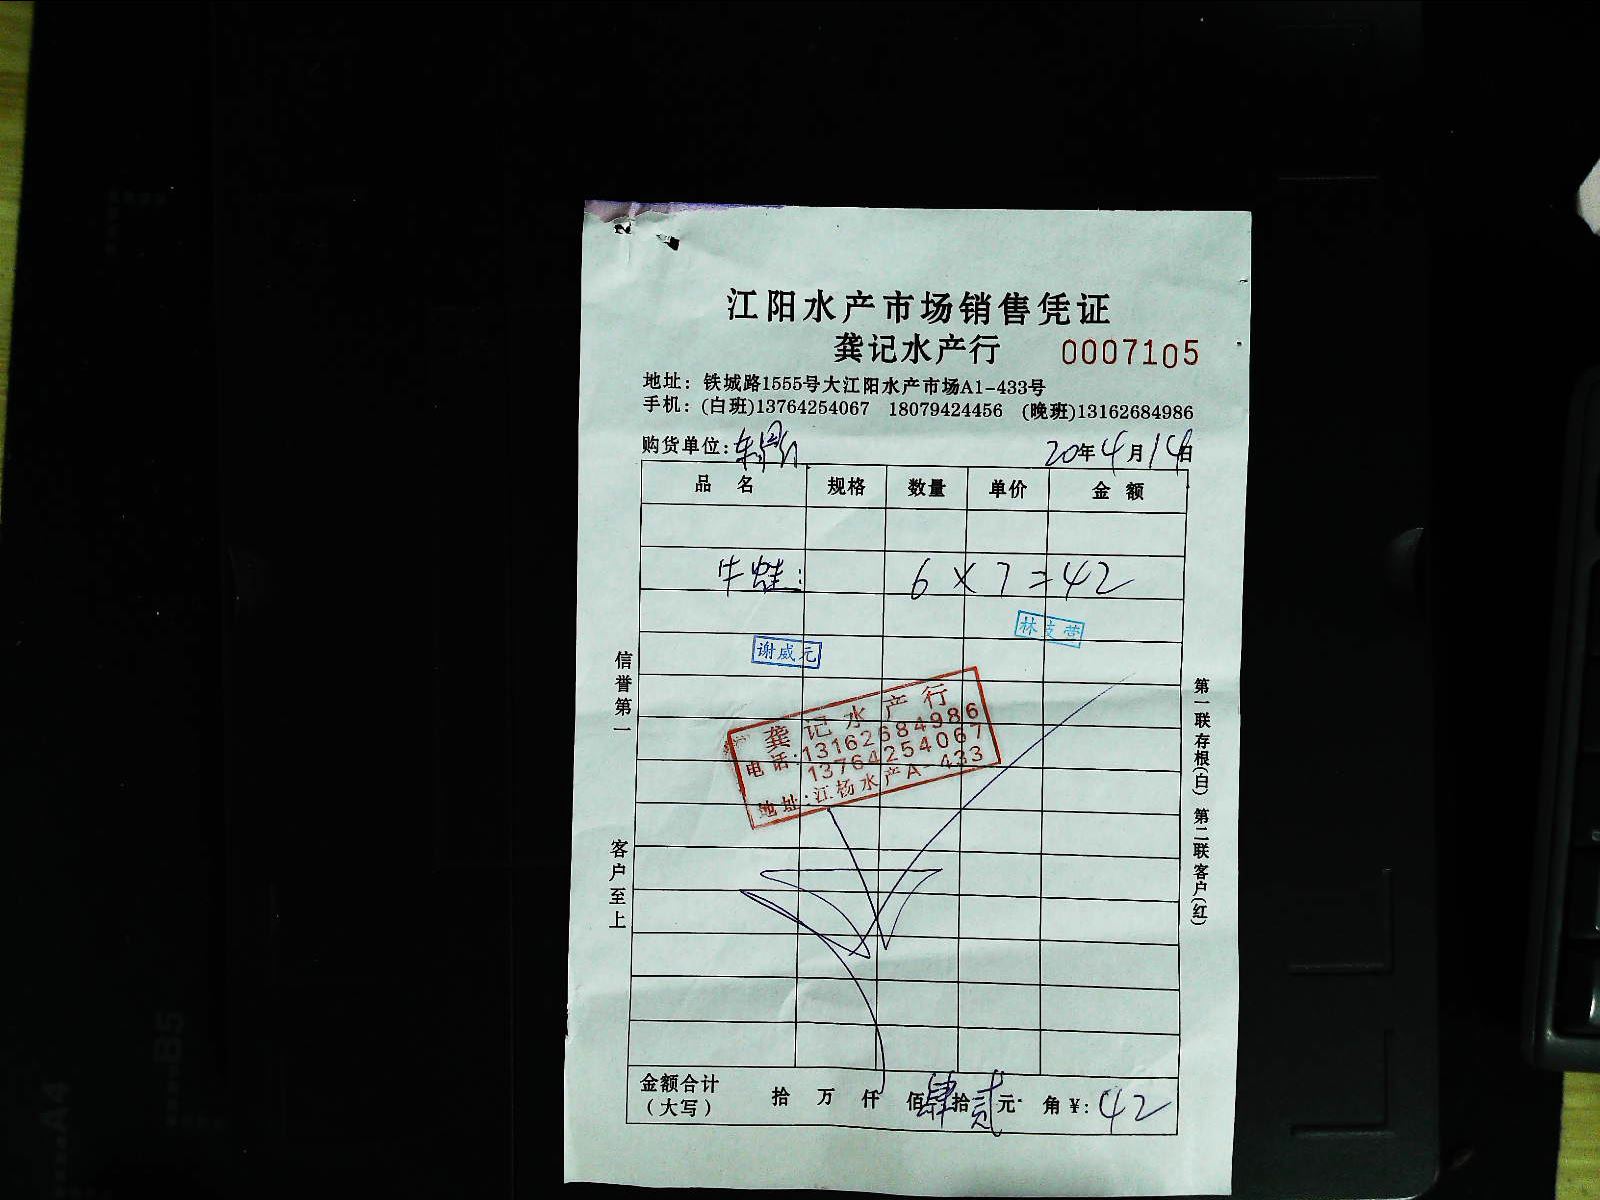 江阳水产市场销售凭证
龚记水产行 0007105
地址：铁城路1555号大江阳水产市场A1-433号
手机：(白班)13764254067 18079424456 (晚班)13162684986
购货单位： 20年4月14日
品名 规格 数量 单价 金额
牛蛙： 6×7=42
林 营
谢威元
龚记水产行
电话：13162684986
13764254067
地址：江杨水产A-433
信誉第一
客户至上
第一联存根(白) 第二联客户(红)
金额合计
(大写) 拾 万 仟 佰肆拾贰元 角 ¥：42
B5
A4